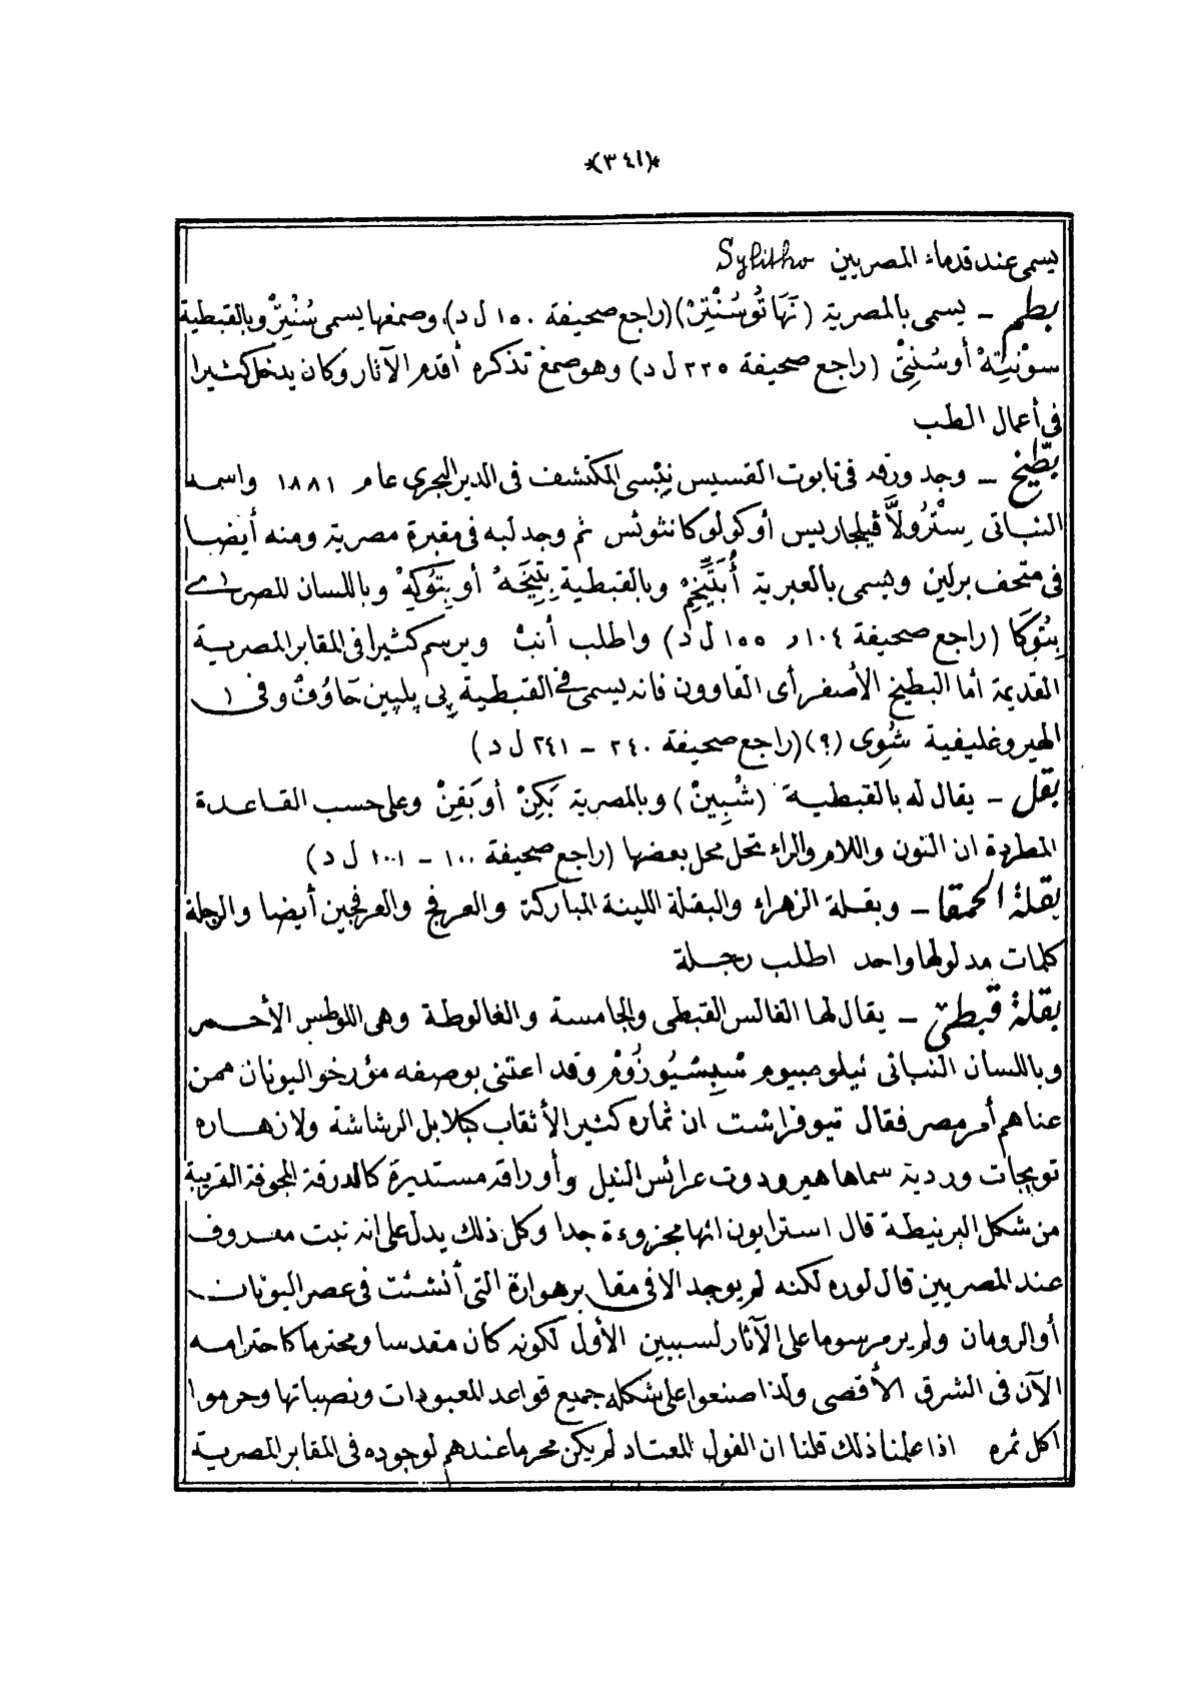 *(٣٤١)*
يسمى عند قدماء المصريين Sylitho
بطم – يسمى بالمصرية (نَهَا تُوسُنْتِرْ) (راجع صحيفة ١٥٠ ل د) وصمغها يسمى سُنْتِرْ وبالقبطية
سوْنتِهْ أوسُنتِى (راجع صحيفة ٢٢٥ ل د) وهو صمغ تذكره أقدم الآثار وكان يدخل كثيرا
فى أعمال الطب
بطّيخ – وجد ورقه فى تابوت القسيس نِبْسى المكتشف فى الدير البحرى عام ١٨٨١ واسمه
النباتى سِتْرُولاَّ ڤيلجاريس أوكولوكانثوئس ثم وجد لبه فى مقبرة مصرية ومنه أيضا
فى متحف برلين ويسمى بالعبرية أُبَتِّيخِمْ وبالقبطية بِتِيخَهْ أو بِتُوكِهْ وباللسان المصرى
بِتُوكَا (راجع صحيفة ١٠٤ر ١٥٥ ل د) واطلب أنبْ ويرسم كثيرا فى المقابر المصرية
القديمة أما البطيخ الأصفر أى القاوون فانه يسمى فى القبطية پى پليپين خَاوُفْ وفى
الهيروغليفية شُوِى (؟) (راجع صحيفة ٢٤٠ – ٢٤١ ل د)
بقل – يقال له بالقبطية (شْبِينْ) وبالمصرية بَكِنْ أو بَقِنْ وعلى حسب القاعدة
المطردة ان النون واللام والراء تحل محل بعضها (راجع صحيفة ١٠٠ – ١٠٠١ ل د)
بقلة الحمقا – وبقلة الزهراء والبقلة اللينة المباركة والعرفج والعرفجين أيضا والرجلة
كلمات مدلولها واحد اطلب رجلة
بقلة قبطىّ – يقال لها الفالس القبطى والجامسة والغالوطة وهى اللوطس الأحمر
وباللسان النباتى نيلومبيوم سْبِسْيُوزُوْم وقد اعتنى بوصفه مؤرخو اليونان ممن
عناهم أمر مصر فقال تيوفراشت ان ثماره كثير الأثقاب كبلابل الرشاشة ولازهاره
تويجات وردية سماها هيرودوت عرائس النيل وأوراقه مستديرة كالدرقة المجوفة القريبة
من شكل البرنيطة قال استرابون انها مجزوءة جدا وكل ذلك يدل على انه نبت معروف
عند المصريين قال لوره لكنه لم يوجد الا فى مقابر هوارة التى أنشئت فى عصر اليونان
أو الرومان ولم ير مرسوما على الآثار لسببين الأول لكونه كان مقدسا ومحترما كاحترامه
الآن فى الشرق الأقصى ولذا صنعوا على شكله جميع قواعد المعبودات ونصباتها وحرموا
اكل ثمره اذا علمنا ذلك قلنا ان الفول المعتاد لم يكن محرما عندهم لوجوده فى المقابر المصرية